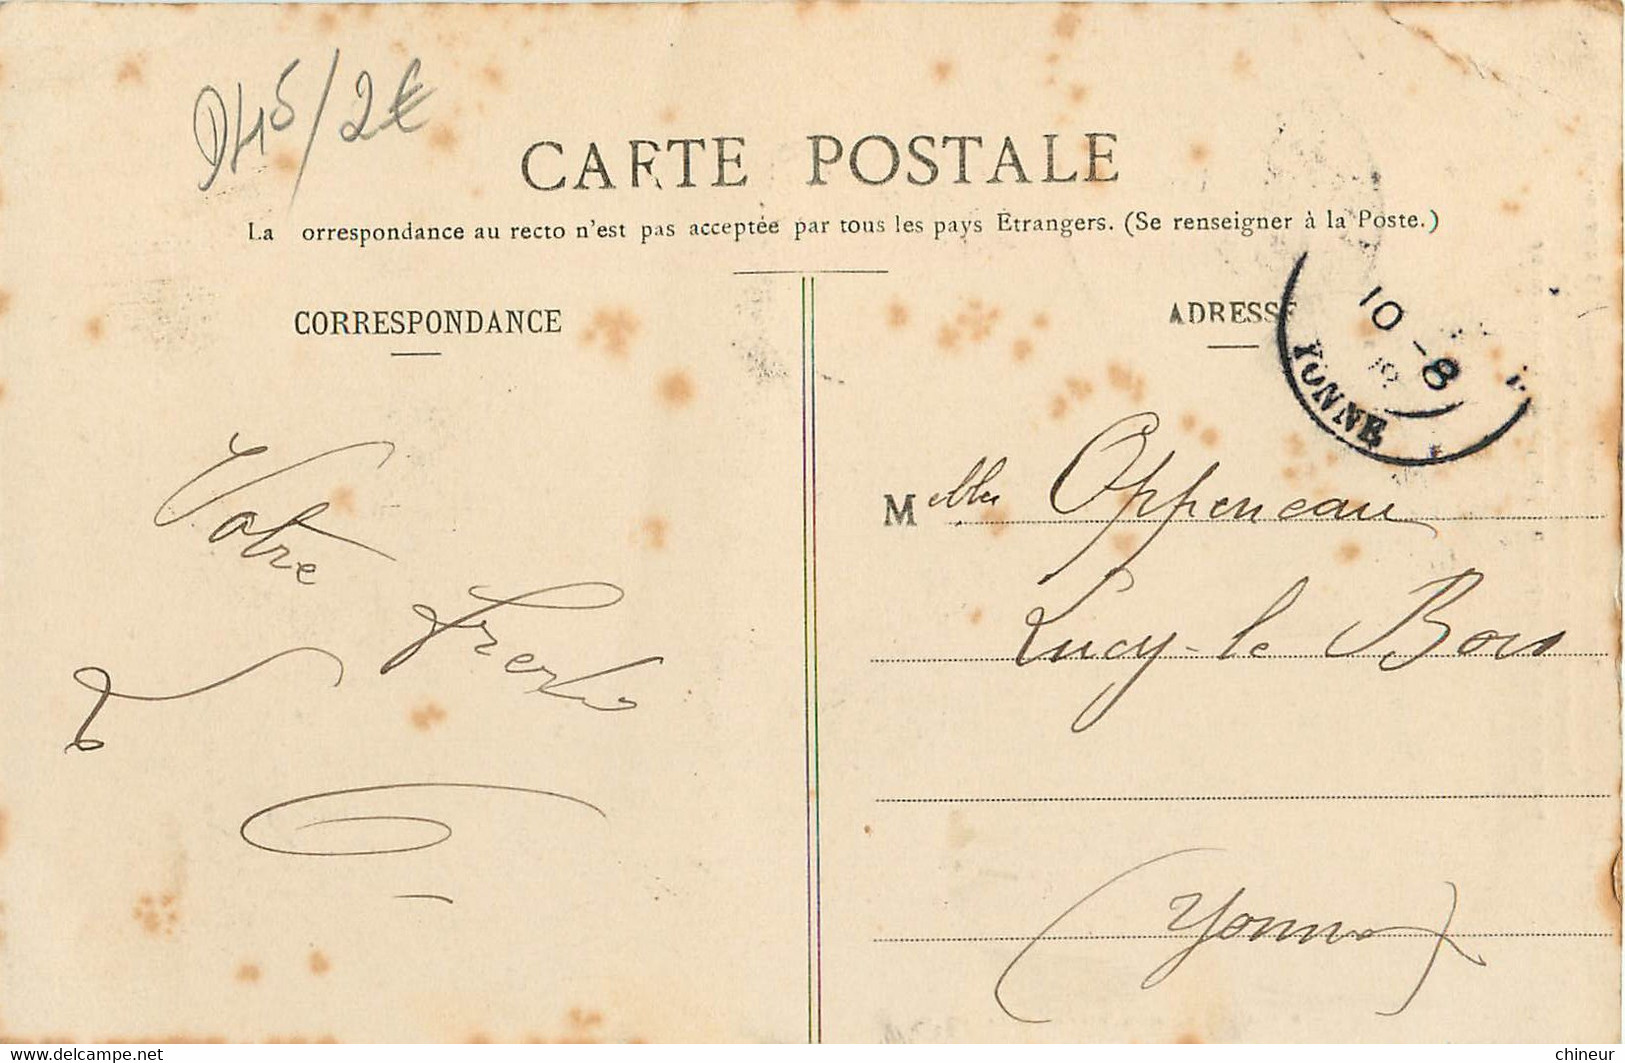 D45/2€
CARTE POSTALE
La orrespondance au recto n'est pas acceptée par tous les pays Étrangers. (Se renseigner à la Poste.)
CORRESPONDANCE
ADRESSE
10 - 8
YONNE
Votre
Melle Oppeneau
Lucy-le Bois
(Yonne)
delcampe.net
chineur